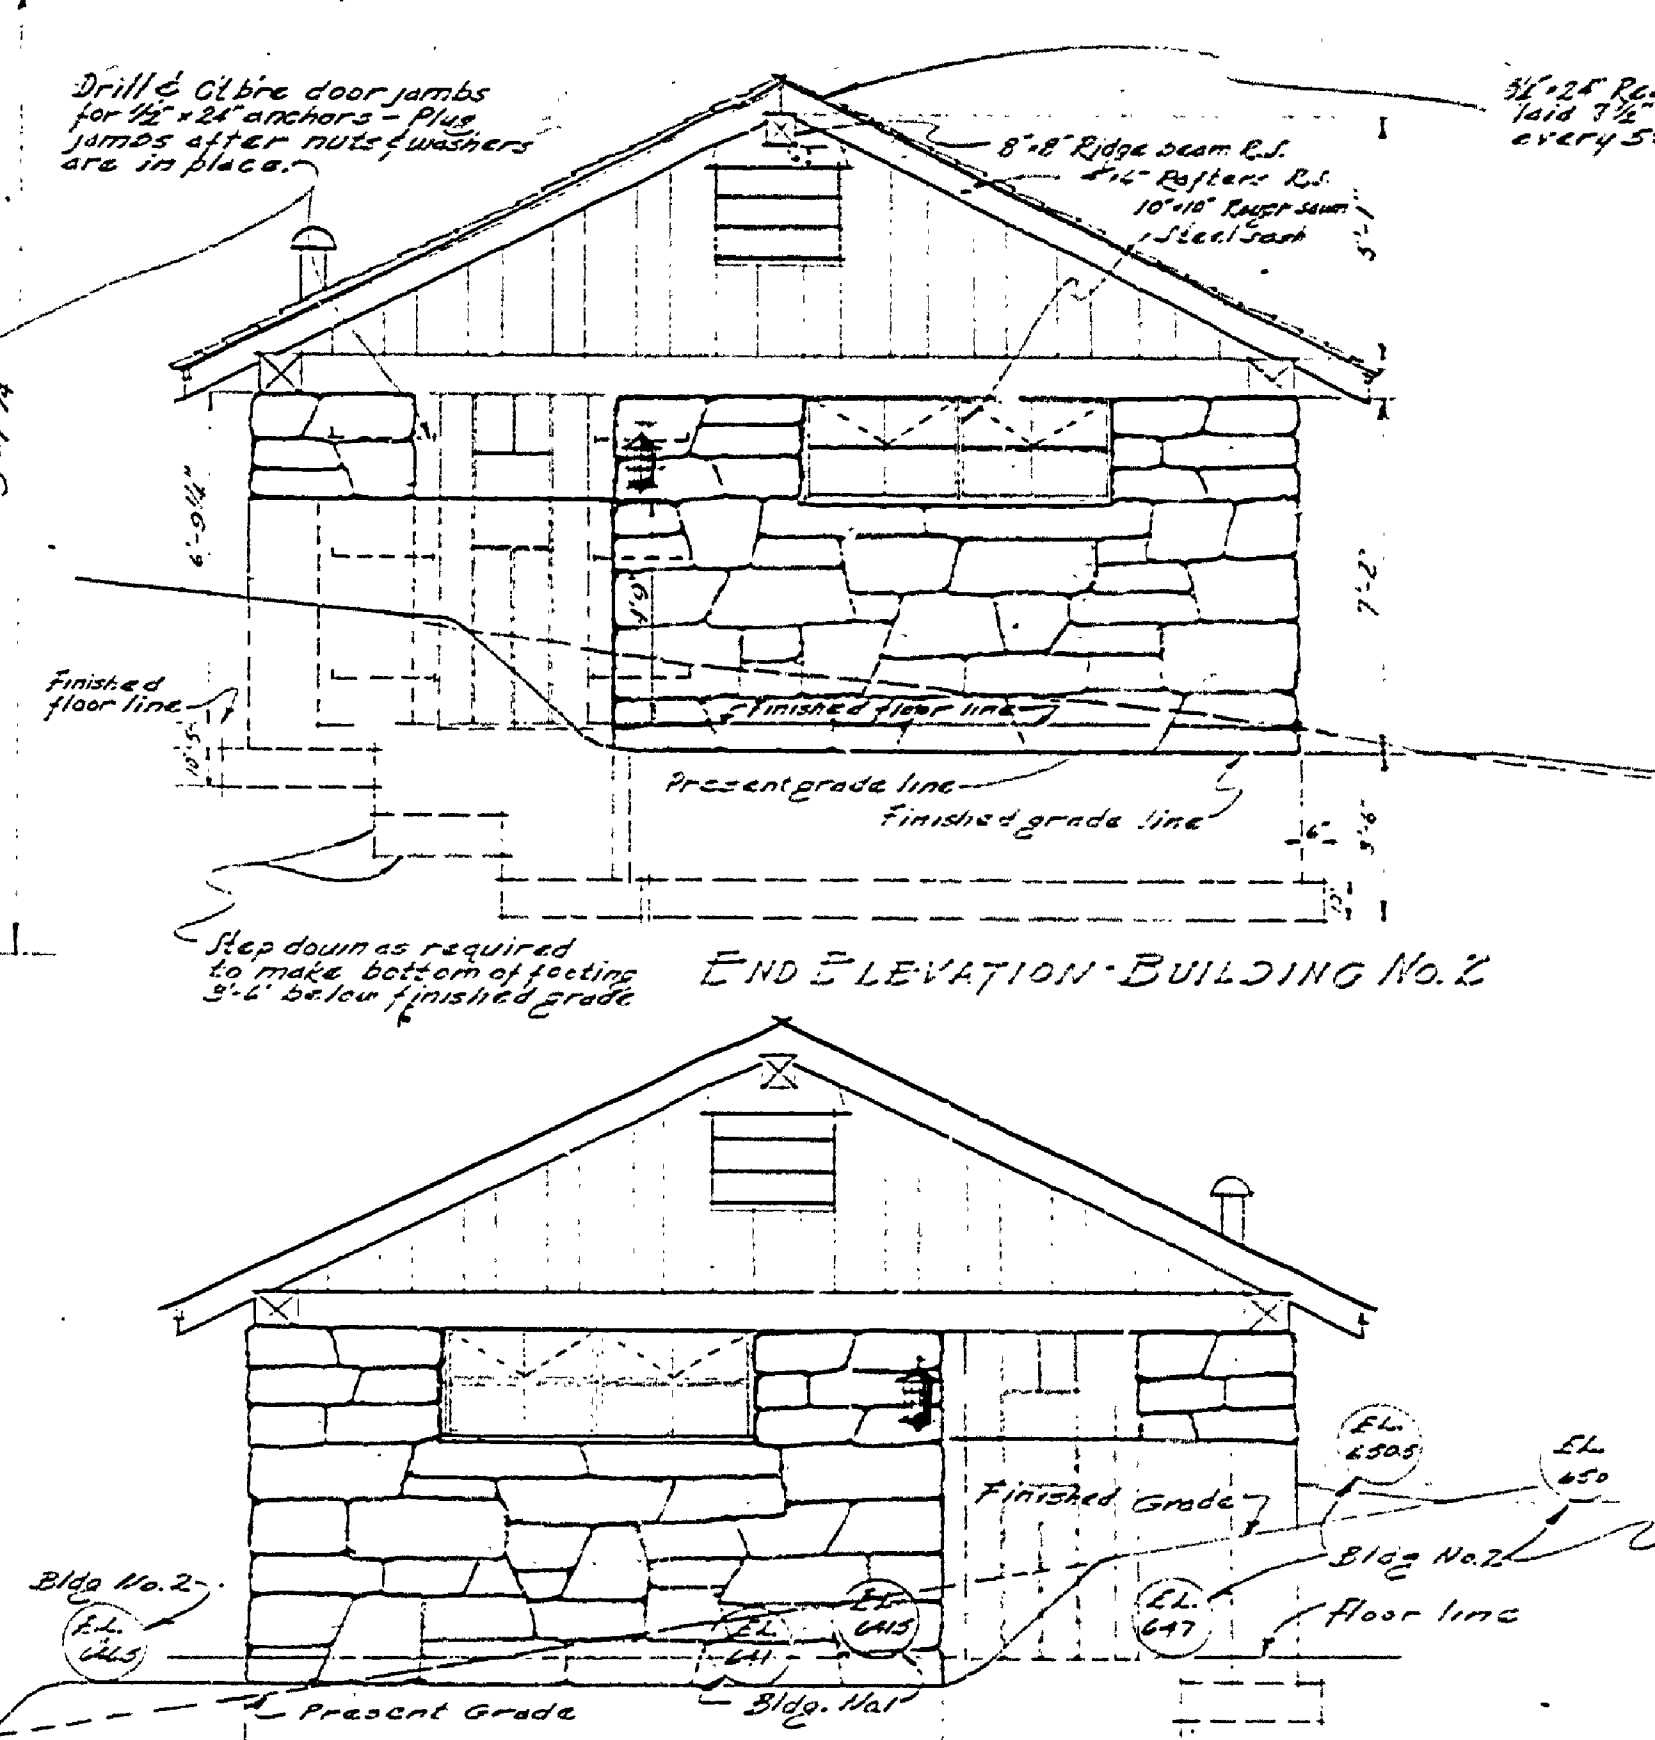 Drill & C'lb're door jambs
for ½" x 24" anchors - Plug
jambs after nuts & washers
are in place.
laid 7½"
every 5
8"x8" Ridge beam R.S.
Rafters R.S.
10"x10" Rough sawn
Steel sash
6'-9¼"
7'-2"
4'9"
Finished
floor line
Finished floor line
Present grade line
Finished grade line
6"
3'-6"
Step down as required
to make bottom of footing
3'-6" below finished grade
END ELEVATION - BUILDING No. 2
EL.
650.5
EL.
650
Finished Grade
Bldg No. 2
Bldg No. 2
EL.
EL.
641
EL.
641.5
EL.
647
floor line
Present Grade
Bldg. No1